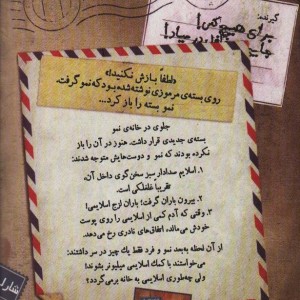 گیرنده:
برای هیچ کس!
«لطفاً بازش نکنید!»
روی بسته‌ی مرموزی نوشته شده بود که نمو گرفت.
نمو بسته را باز کرد...
جلوی در خانه‌ی نمو
بسته‌ی جدیدی قرار داشت. هنوز در آن را باز
نکرده بودند که نمو و دوست‌هایش متوجه شدند:
۱. اسلایم صدادار سبز سخن‌گوی داخل آن،
تقریبا غلغلکی است.
۲. بیرون باران گرفت؛ باران لزج اسلایمی!
۳. وقتی که آدم کمی از اسلایمی را روی پوست
خودش می‌ماند، اتفاق‌های نادری رخ می‌دهد.
از آن لحظه به‌بعد نمو و فرد فقط یك چیز در سر داشتند:
می‌خواستند با کمك اسلایمی میلیونر بشوند!
ولی چه‌طوری اسلایمی به خانه برمی‌گردد؟